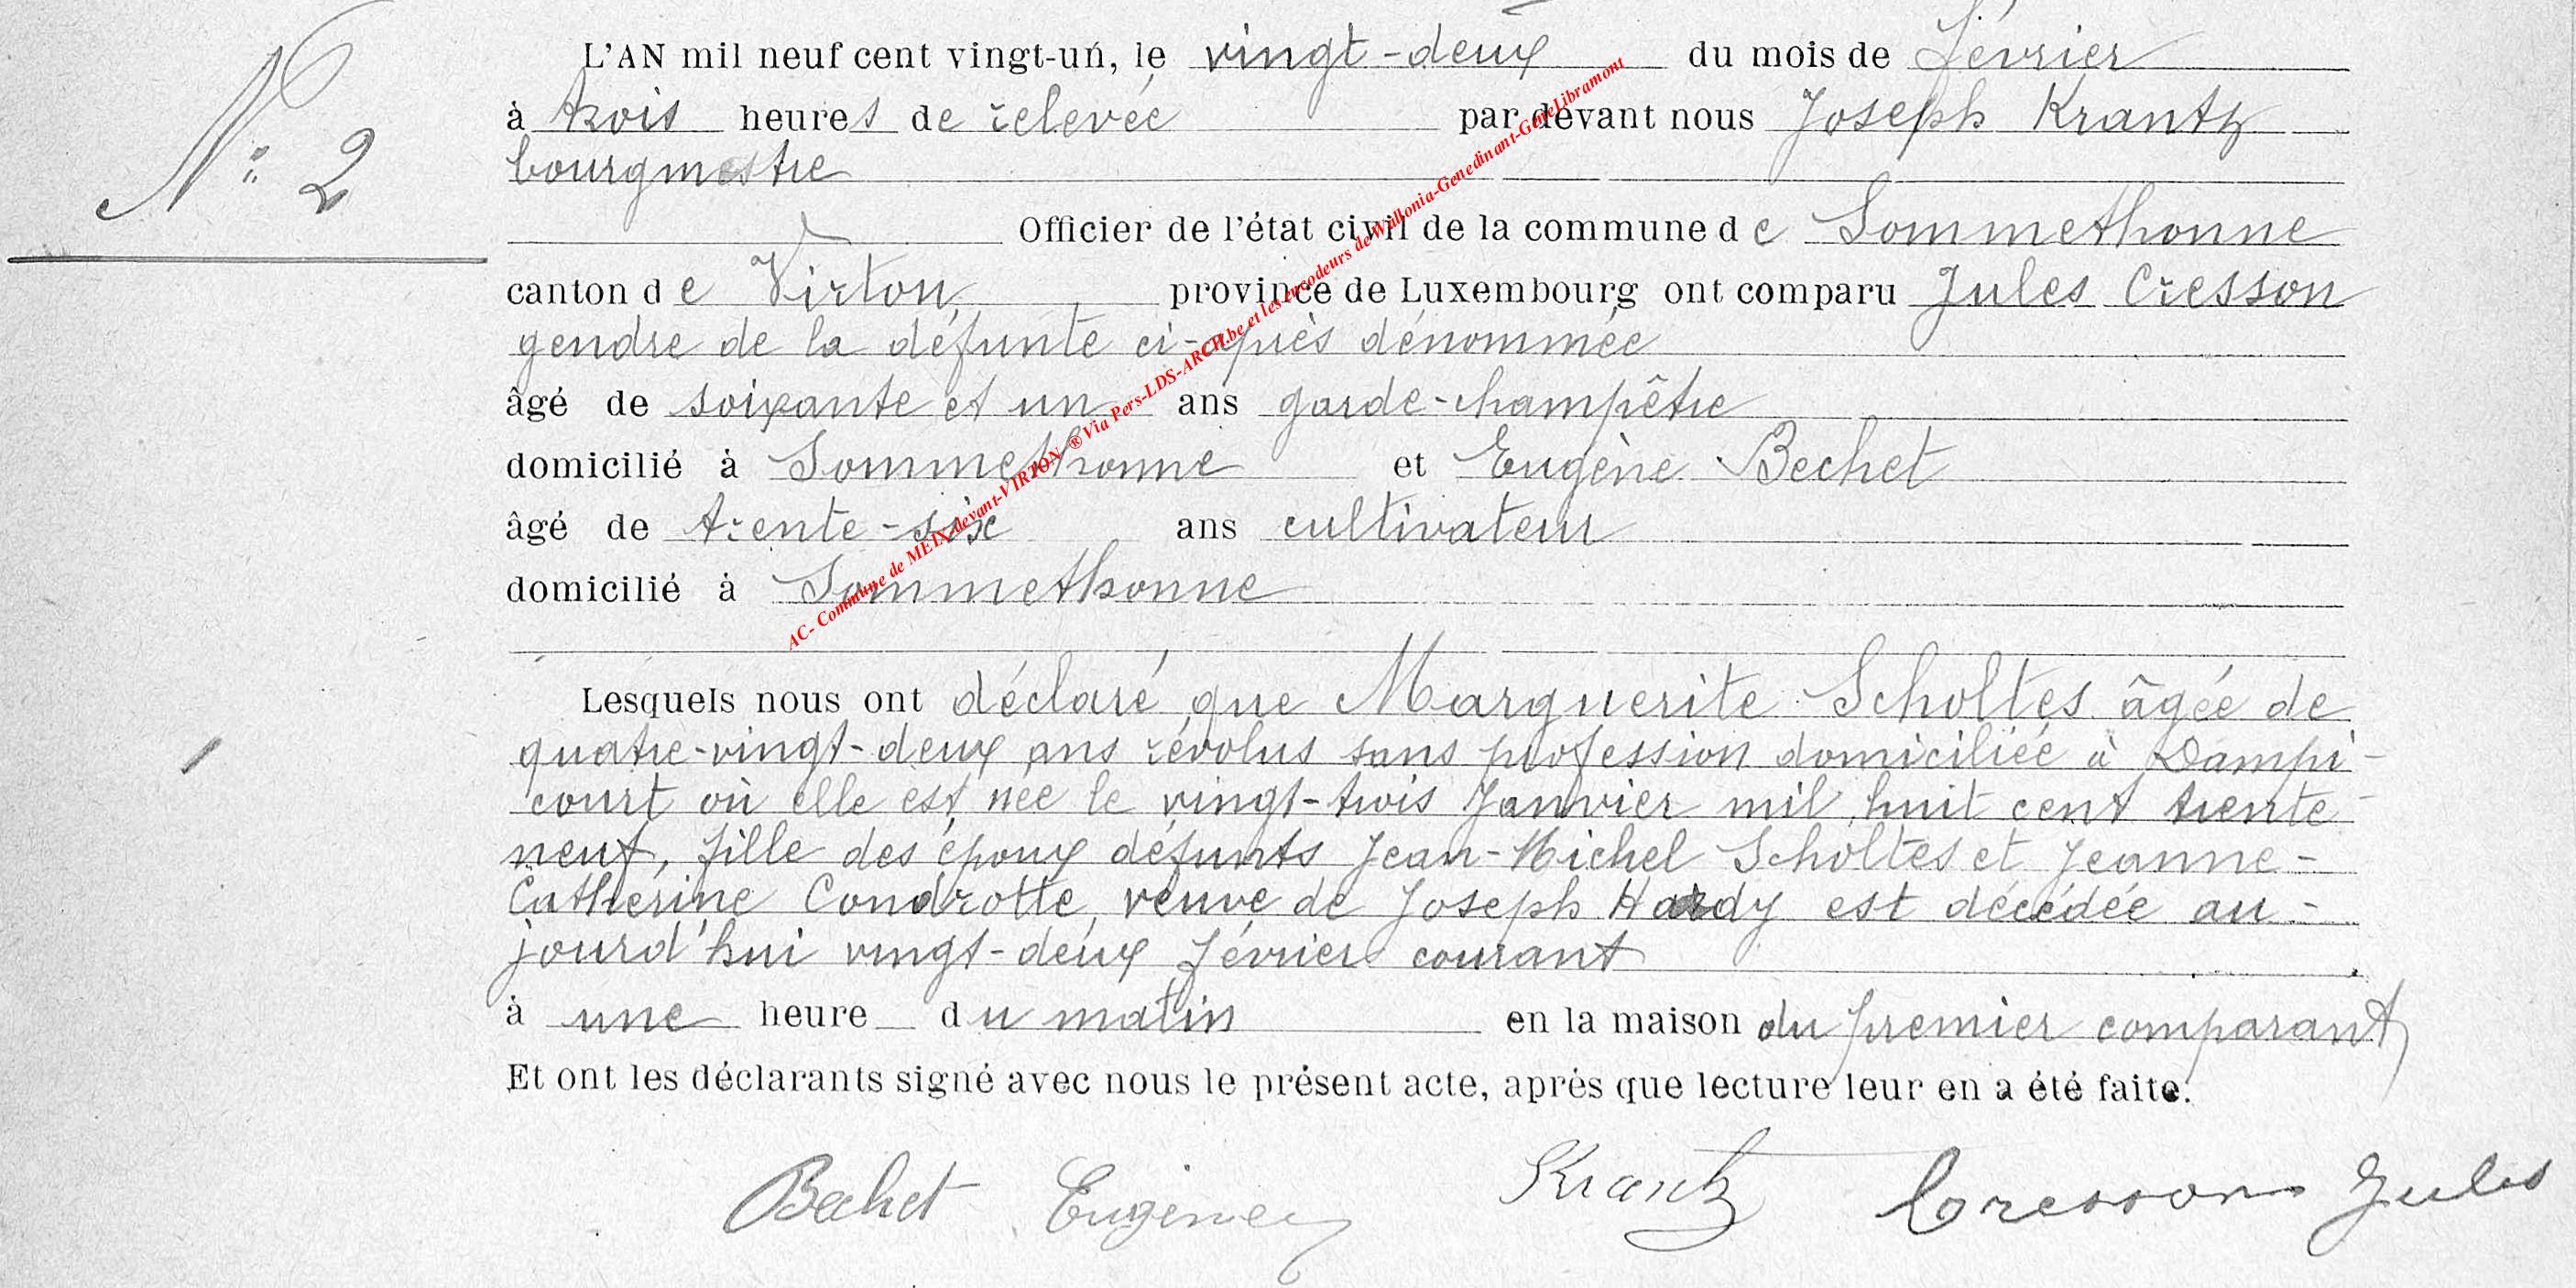 N° 2
L'AN mil neuf cent vingt-un, le vingt-deux du mois de février
à trois heures de relevée par devant nous Joseph Krantz
bourgmestre
Officier de l'état civil de la commune de Sommethonne
canton de Virton province de Luxembourg ont comparu Jules Cresson
gendre de la défunte ci-après dénommée
âgé de soixante et un ans garde-champêtre
domicilié à Sommethonne et Eugène Bechet
âgé de trente-six ans cultivateur
domicilié à Sommethonne
Lesquels nous ont déclaré que Marguerite Scholtes âgée de
quatre-vingt-deux ans révolus sans profession domiciliée à Dampi-
court où elle est née le vingt-trois Janvier mil huit cent trente-
neuf, fille des époux défunts Jean-Michel Scholtes et Jeanne-
Catherine Condrotte, veuve de Joseph Hardy est décédée au-
jourd'hui vingt-deux février courant
à une heure du matin en la maison du premier comparant
Et ont les déclarants signé avec nous le présent acte, après que lecture leur en a été faite.
Bechet Eugène Krantz Cresson Jules
AC- Commune de MEIX-devant-VIRTON ® Via Pers-LDS-ARCH.be et les encodeurs de Wallonia-Genedinant-GeneLibramont